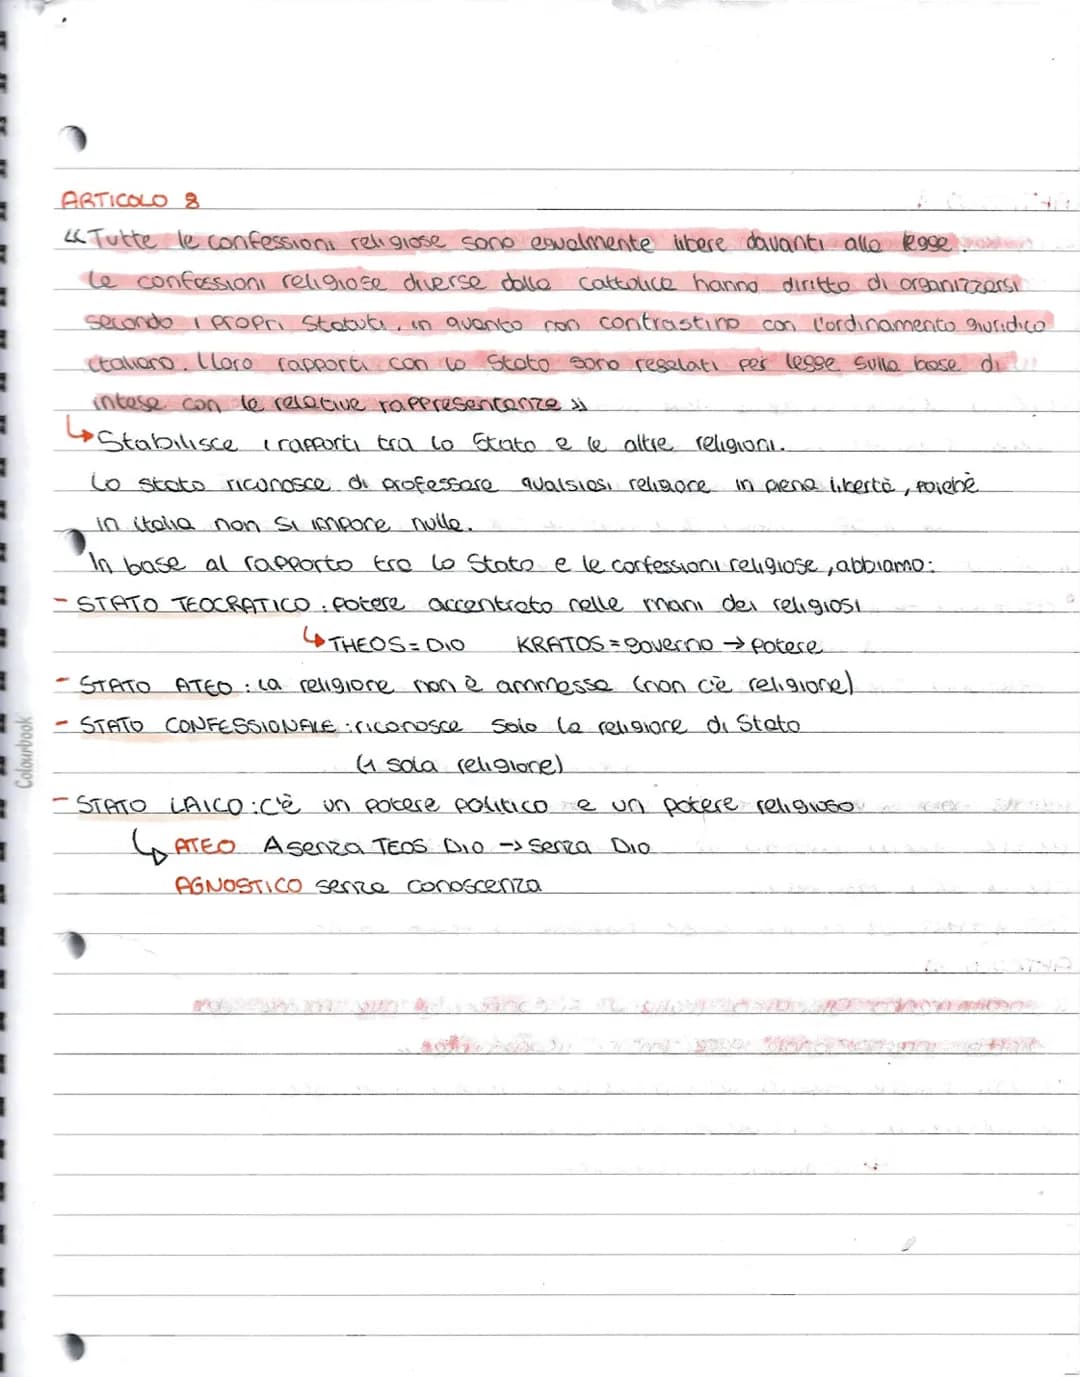 ARTICOLO 8
«Tutte le confessioni religiose sono egualmente libere davanti alla legge.
Le confessioni religiose diverse dalla cattolica hanno diritto di organizzarsi
secondo i propri Statuti, in quanto non contrastino con l'ordinamento giuridico
italiano. I loro rapporti con lo Stato sono regolati per legge sulla base di
intese con le relative rappresentanze»
↳Stabilisce i rapporti tra lo Stato e le altre religioni.
Lo stato riconosce di professare qualsiasi religione in piena libertà, poichè
in italia non si impone nulla.
In base al rapporto tra lo Stato e le confessioni religiose, abbiamo:
- STATO TEOCRATICO: potere accentrato nelle mani dei religiosi
↳THEOS=DIO KRATOS=governo → potere
- STATO ATEO: la religione non è ammessa (non c'è religione)
- STATO CONFESSIONALE: riconosce solo la religione di Stato
(1 sola religione)
- STATO LAICO: c'è un potere politico e un potere religioso
↳ ATEO A senza TEOS DIO → senza DIO
AGNOSTICO senza conoscenza
Colourbook